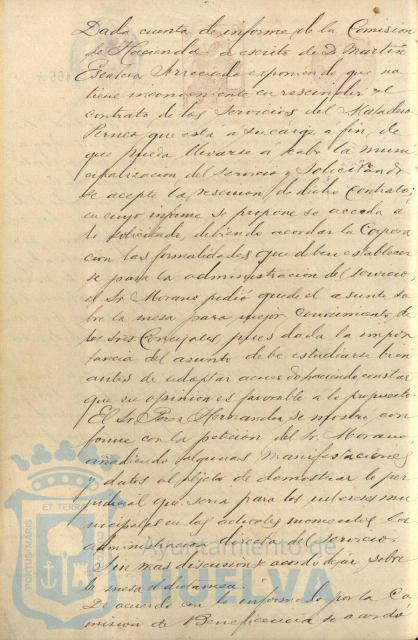 Dada cuenta de informe de la Comision
de Hacienda a escrito de D. Martin
Escalera Arreciado exponiendo que no
tiene inconveniente en rescindir el
contrato de los Servicios del Matadero
que esta a su cargo a fin de
que pueda llevarse á cabo la muni
cipalizacion del servicio y solicitando
se acepte la rescision de dicho contrato;
en cuyo informe se propone se acceda a
lo solicitado, debiendo acordar la Corpora
cion las formalidades que deben establecer
se para la administracion del servicio,
el Sr. Morano pidió quede el asunto so
bre la mesa para mejor conocimiento de
los Sres Concejales, pues dada la impor
tancia del asunto debe estudiarse bien
antes de adoptar acuerdo haciendo constar
que su opinion es favorable a lo propuesto.
El Sr. Perez Hernandez se mostró con
forme con la peticion del Sr. Morano
añadiendo algunas manifestaciones
y datos al objeto de demostrar lo per
judicial que seria para los intereses mu
nicipales en los actuales momentos la
administracion directa del servicio.
Sin mas discusion se acordo dejar sobre
la mesa el dictamen.
De acuerdo con lo informado por la Co
mision de Beneficencia se acordo
PORTUS MARIS
ET TERRÆ
Ayuntamiento de
HUELVA